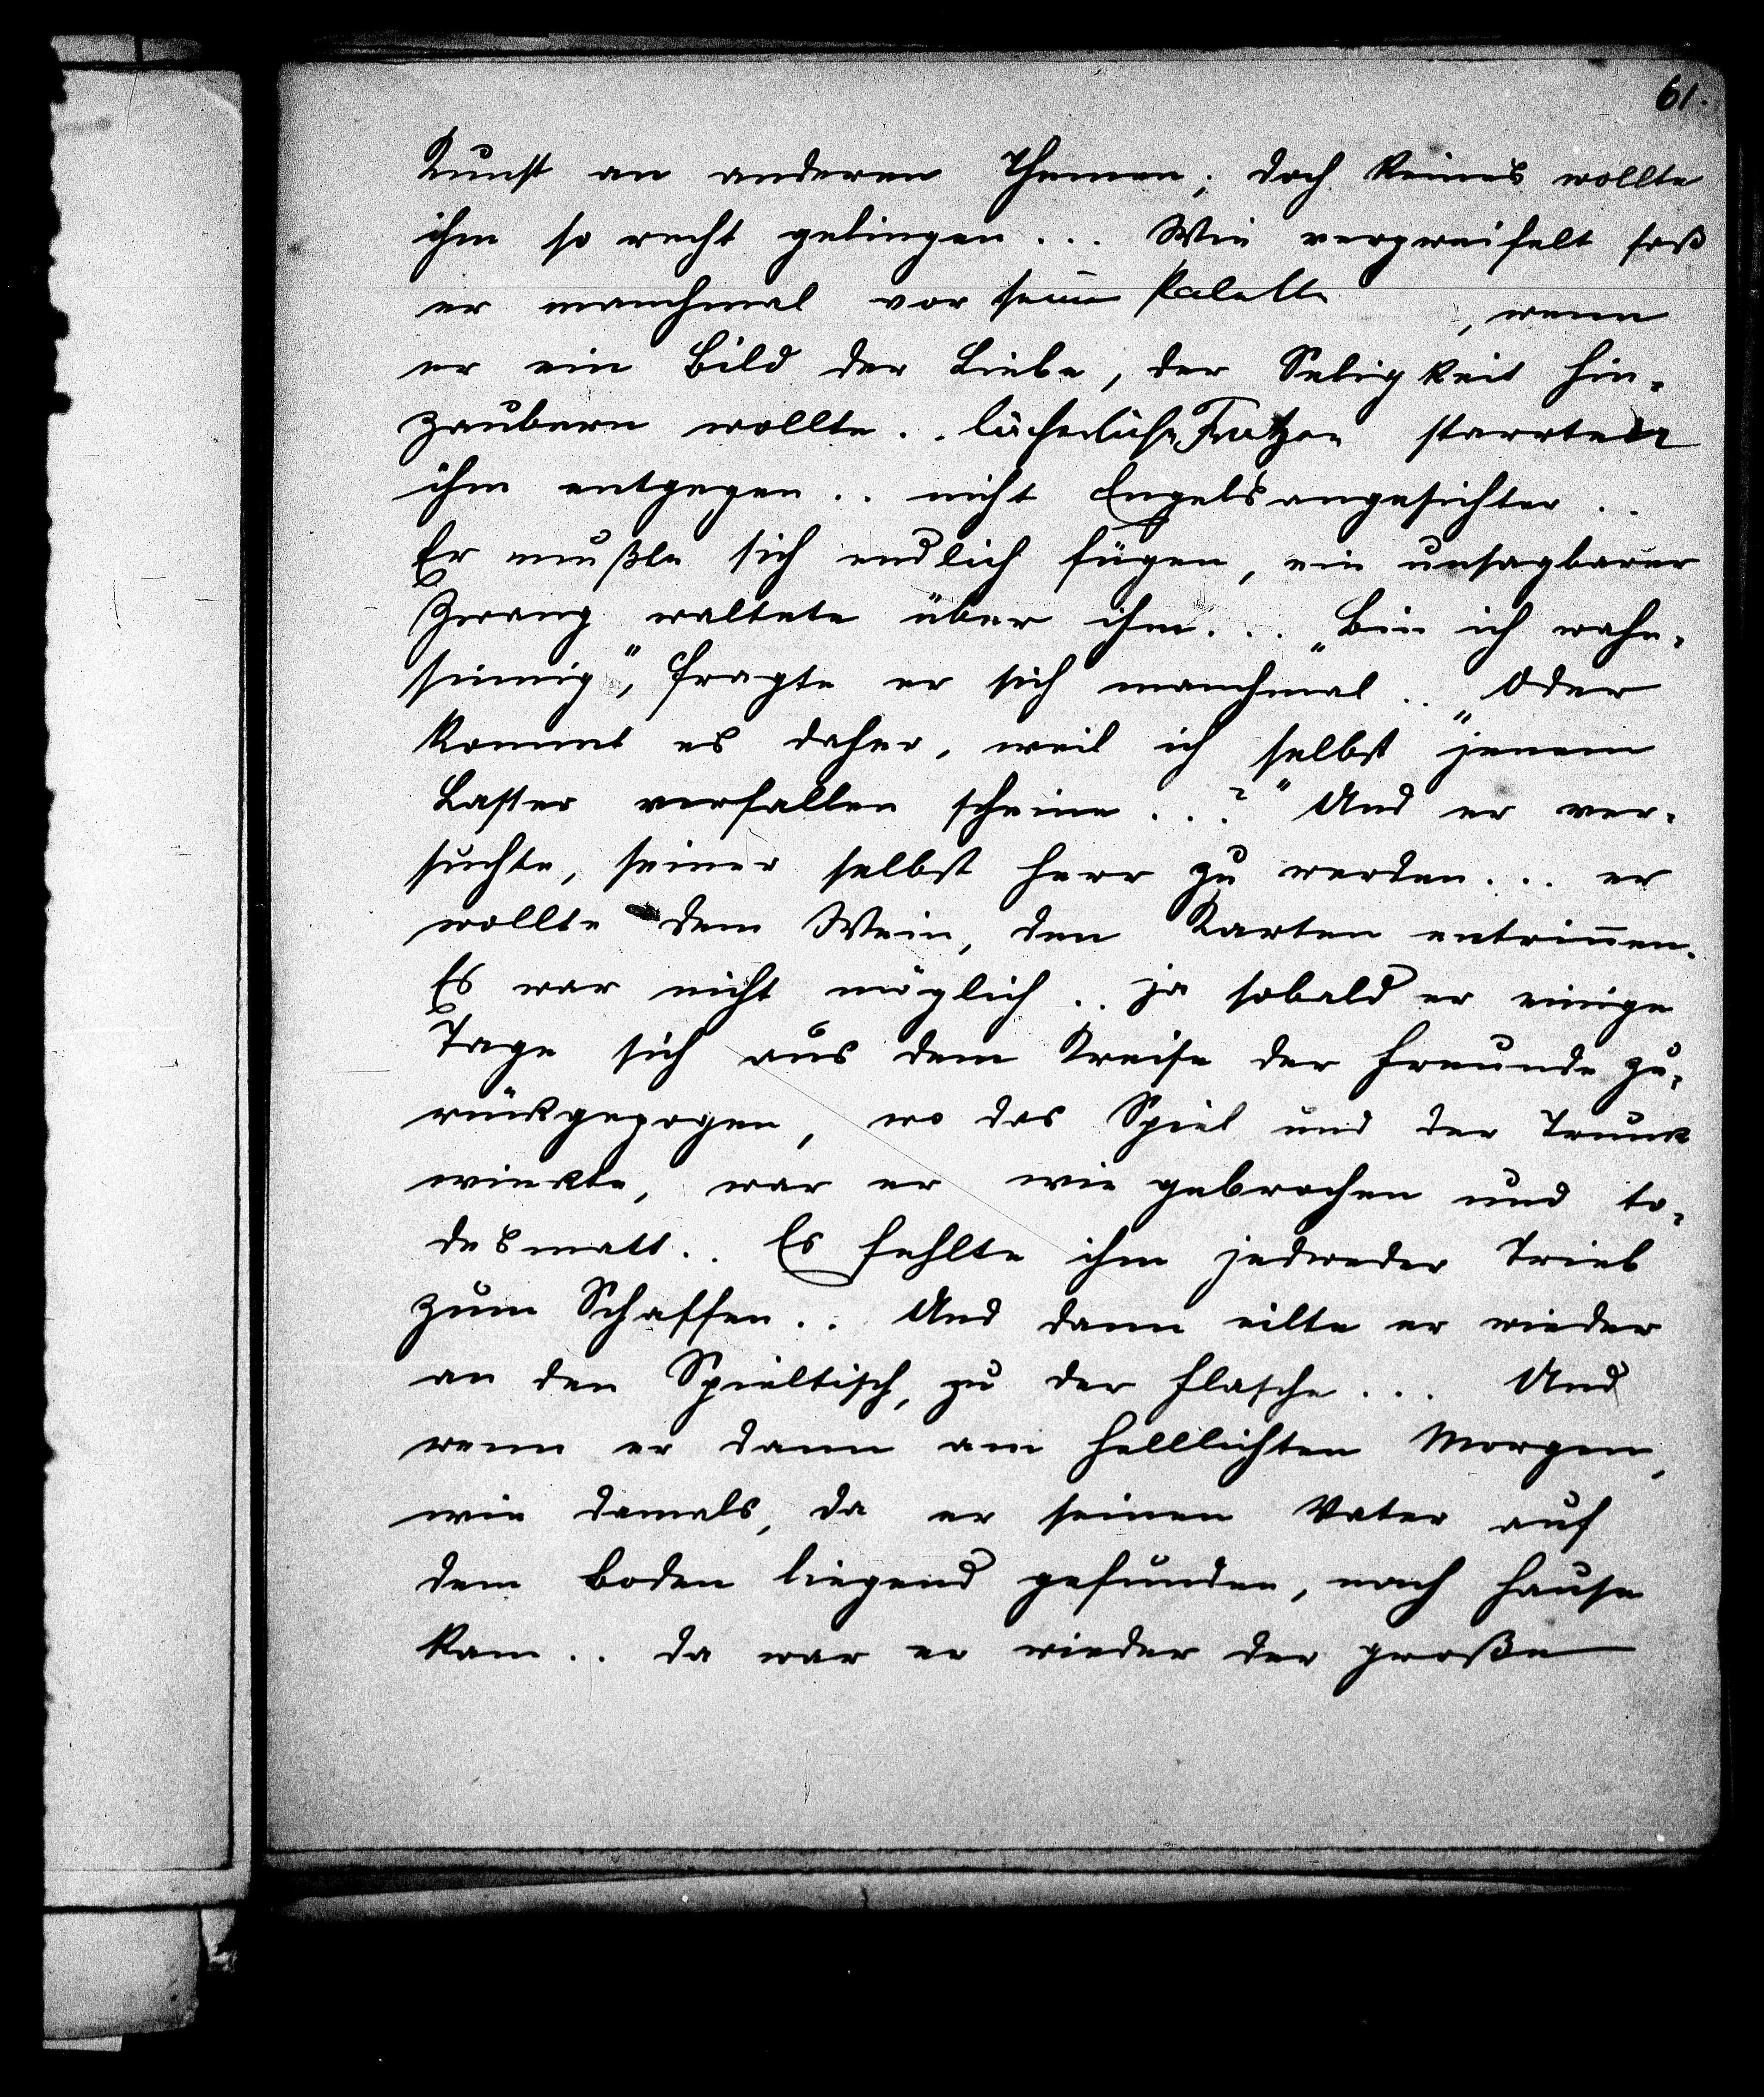 61.
Kunst an anderen Themen; doch keines wollte
ihm so recht gelingen... Wie verzweifelt saß
er manchmal vor seiner Palette, wenn
er ein Bild der Liebe, der Seligkeit hin-
zaubern wollte.. lächerliche Fratzen starrten
ihm entgegen.. nicht Engelsangesichter..
Er mußte sich endlich fügen, ein unsagbarer
Zwang waltete über ihm... „Bin ich wahn-
sinnig", fragte er sich manchmal.. „Oder
kommt es daher, weil ich selbst jenem
Laster verfallen scheine...?" Und er ver-
suchte, seiner selbst Herr zu werden... er
wollte dem Wein, den Karten entrinnen.
Es war nicht möglich.. ja sobald er einige
Tage sich aus dem Kreise der Freunde zu-
rückgezogen, wo das Spiel und der Trunk
winkte, war er wie gebrochen und to-
desmatt.. Es fehlte ihm jedweder Trieb
zum Schaffen.. Und dann eilte er wieder
an den Spieltisch, zu der Flasche... Und
wenn er dann am helllichten Morgen,
wie damals, da er seinen Vater auf
dem Boden liegend gefunden, nach Hause
kam.. da war er wieder der große